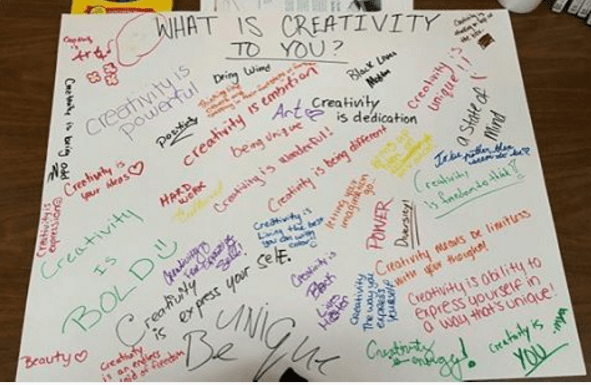 WHAT IS CREATIVITY
TO YOU?
Creativity is
powerful
Being Weird
Black Lives
Matter
Creativity is
unique!!
a State of
Mind
Creativity is being odd
positivity
creativity is
being unique
Art
Creativity
is dedication
Creativity is
your ideas
HARD
WORK
Creativity is wonderful!
Creativity is being different
letting your
imagination
go...
Creativity
is freedom to think!!
Creativity is
expression
Creativity
IS
BOLD
Creativity is
Living the best
you can with
color
POWER
Diversity!
Creativity means be limitless
with your thoughts!
Creativity
is express your self.
Creativity is
Black
Lives
Matter
Creativity
The way you
express
yourself
Creativity is ability to
express yourself in
a way that's unique!
Beauty
Creativity
is an endless
void of freedom
Be UNIQUE
Creativity
energy!
Creativity is
YOU